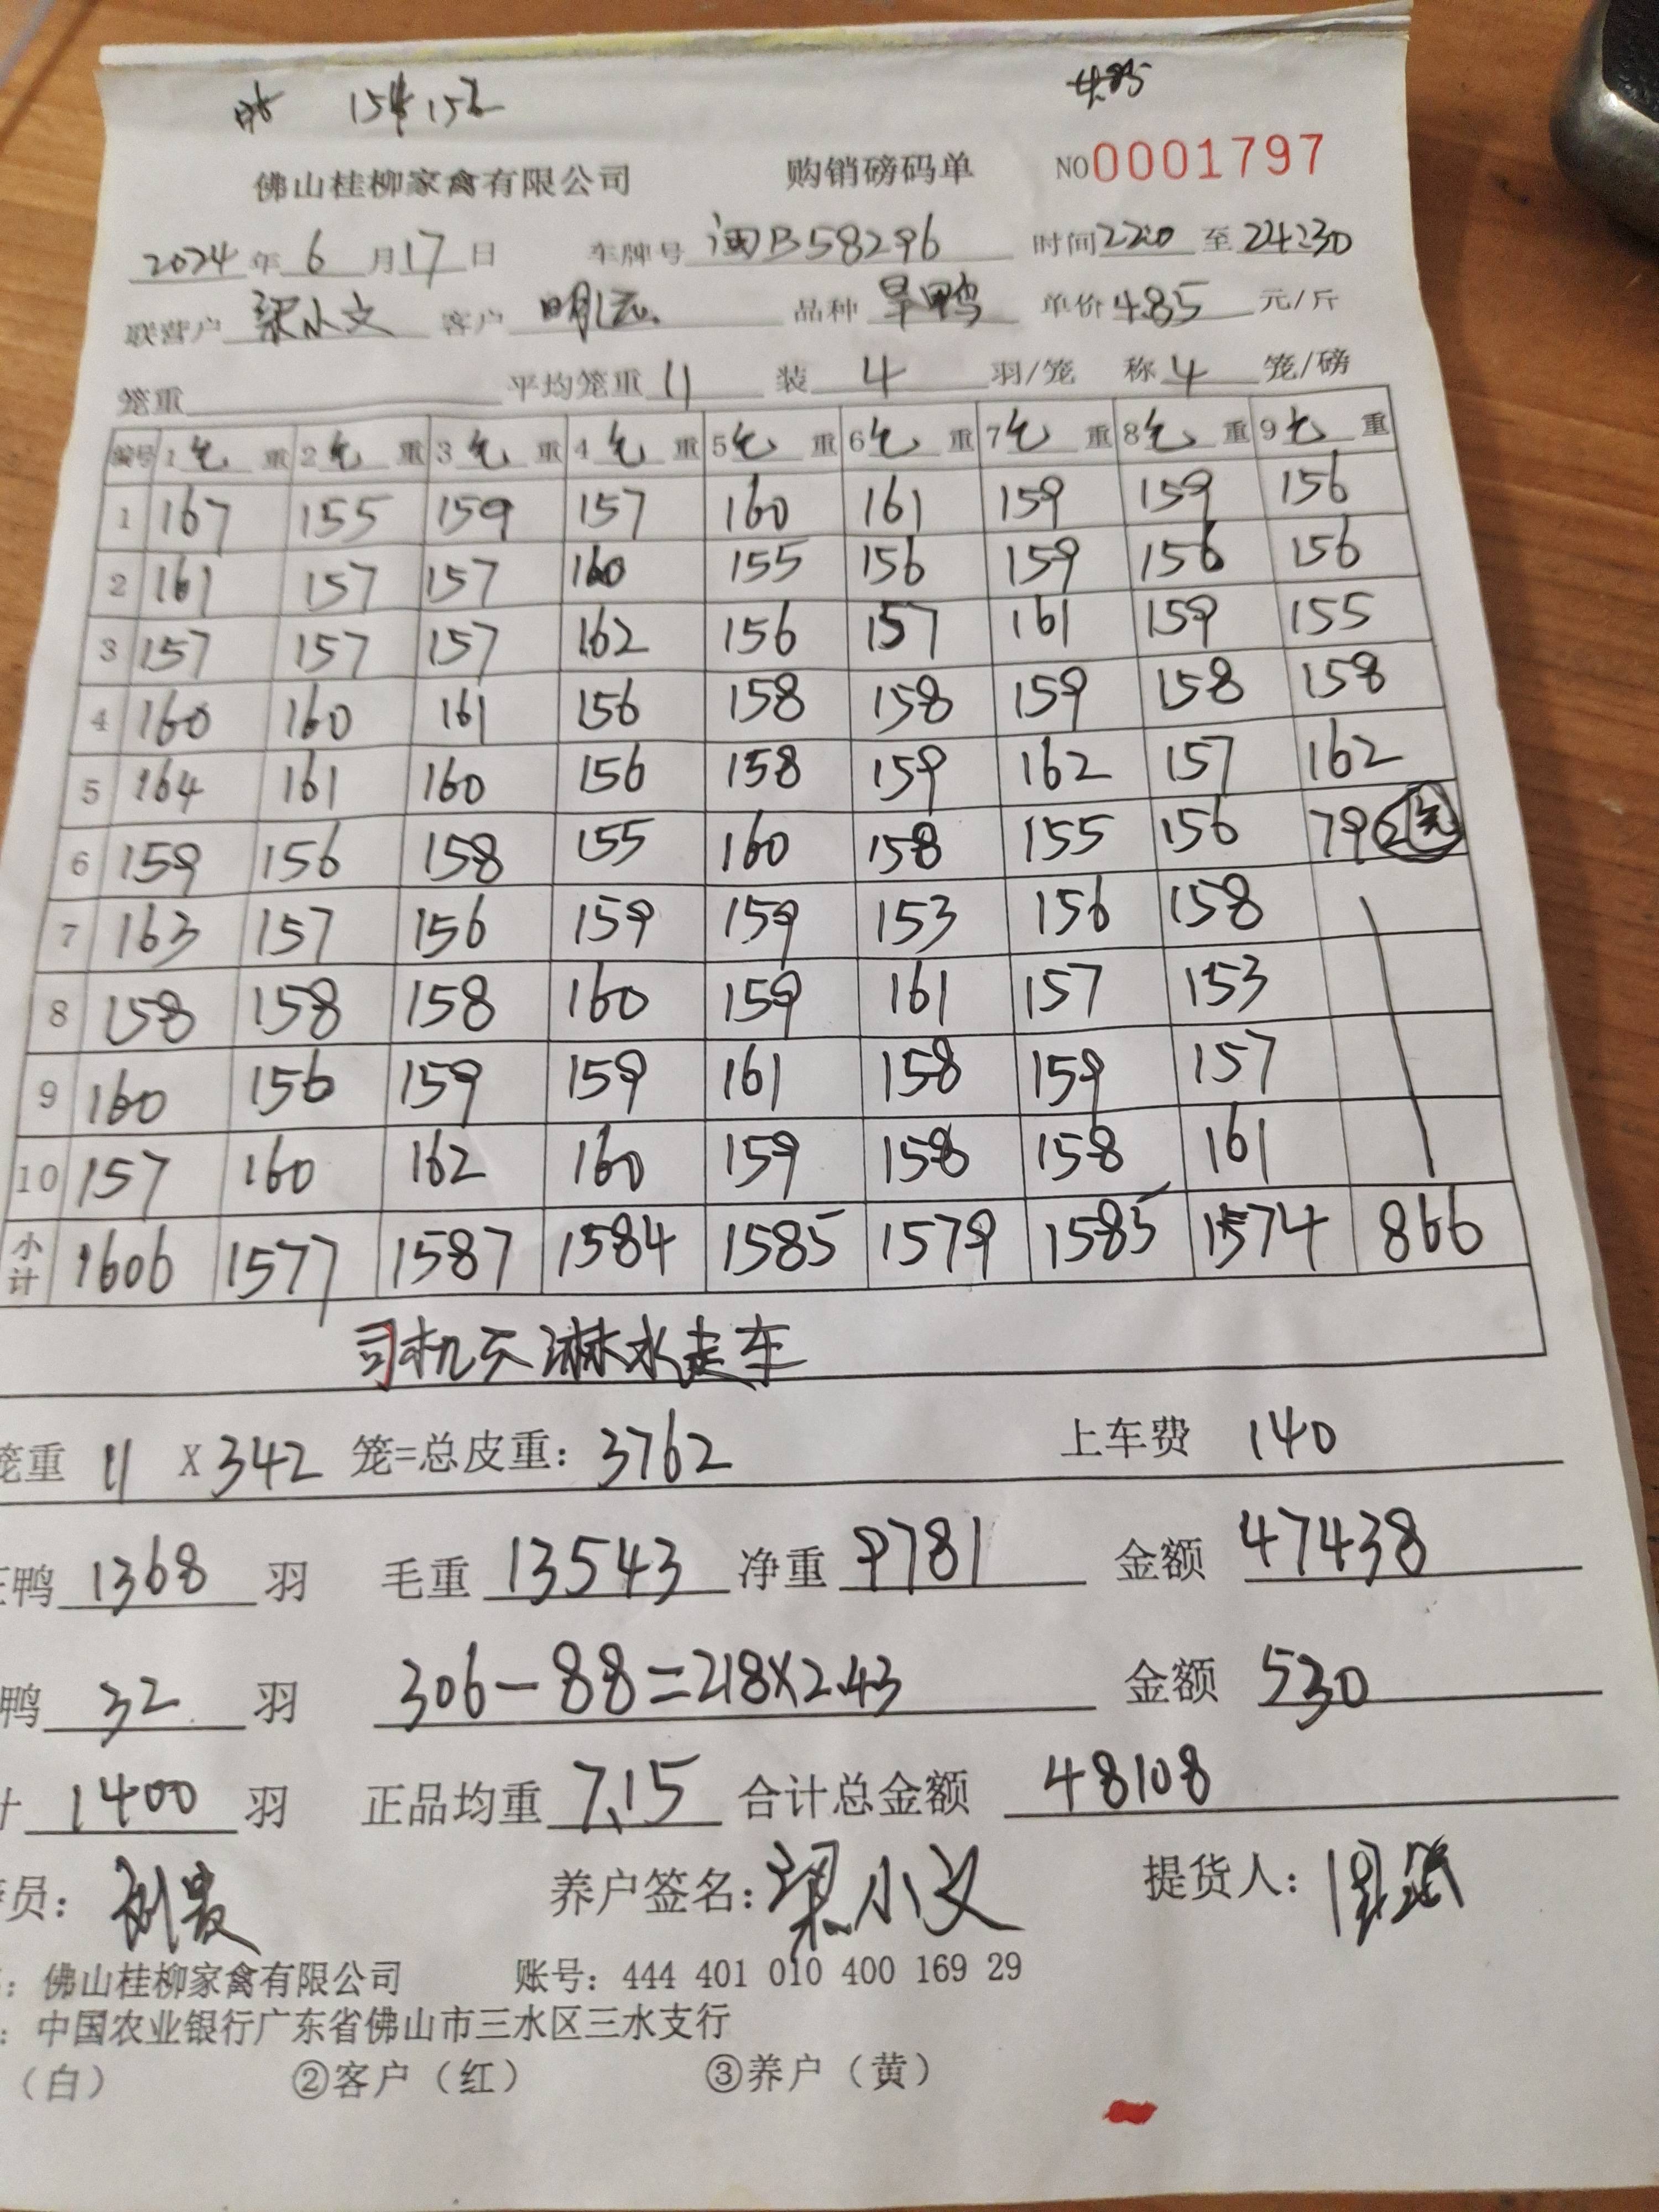 154 152
4.85
佛山桂柳家禽有限公司 购销磅码单 NO0001797
2024年6月17日 车牌号 闽B58296 时间 22:0 至 24:30
联营户 梁小文 客户 明 品种 旱鸭 单价 4.85 元/斤
笼重 平均笼重 11 装 4 羽/笼 称 4 笼/磅
编号 1毛重 2毛重 3毛重 4毛重 5毛重 6毛重 7毛重 8毛重 9毛重
1 167 155 159 157 160 161 159 159 156
2 161 157 157 160 155 156 159 156 156
3 157 157 157 162 156 157 161 159 155
4 160 160 161 156 158 158 159 158 158
5 164 161 160 156 158 159 162 157 162
6 159 156 158 155 160 158 155 156 79 2笼
7 163 157 156 159 159 153 156 158
8 158 158 158 160 159 161 157 153
9 160 156 159 159 161 158 159 157
10 157 160 162 160 159 158 158 161
小计 1606 1577 1587 1584 1585 1579 1585 1574 866
司机不淋水走车
笼重 11 X 342 笼=总皮重: 3762 上车费 140
鸭 1368 羽 毛重 13543 净重 9781 金额 47438
鸭 32 羽 306-88=218×2.43 金额 530
计 1400 羽 正品均重 7.15 合计总金额 48108
员: 刘 养户签名: 梁小文 提货人:
: 佛山桂柳家禽有限公司 账号: 444 401 010 400 169 29
: 中国农业银行广东省佛山市三水区三水支行
(白) ②客户(红) ③养户(黄)